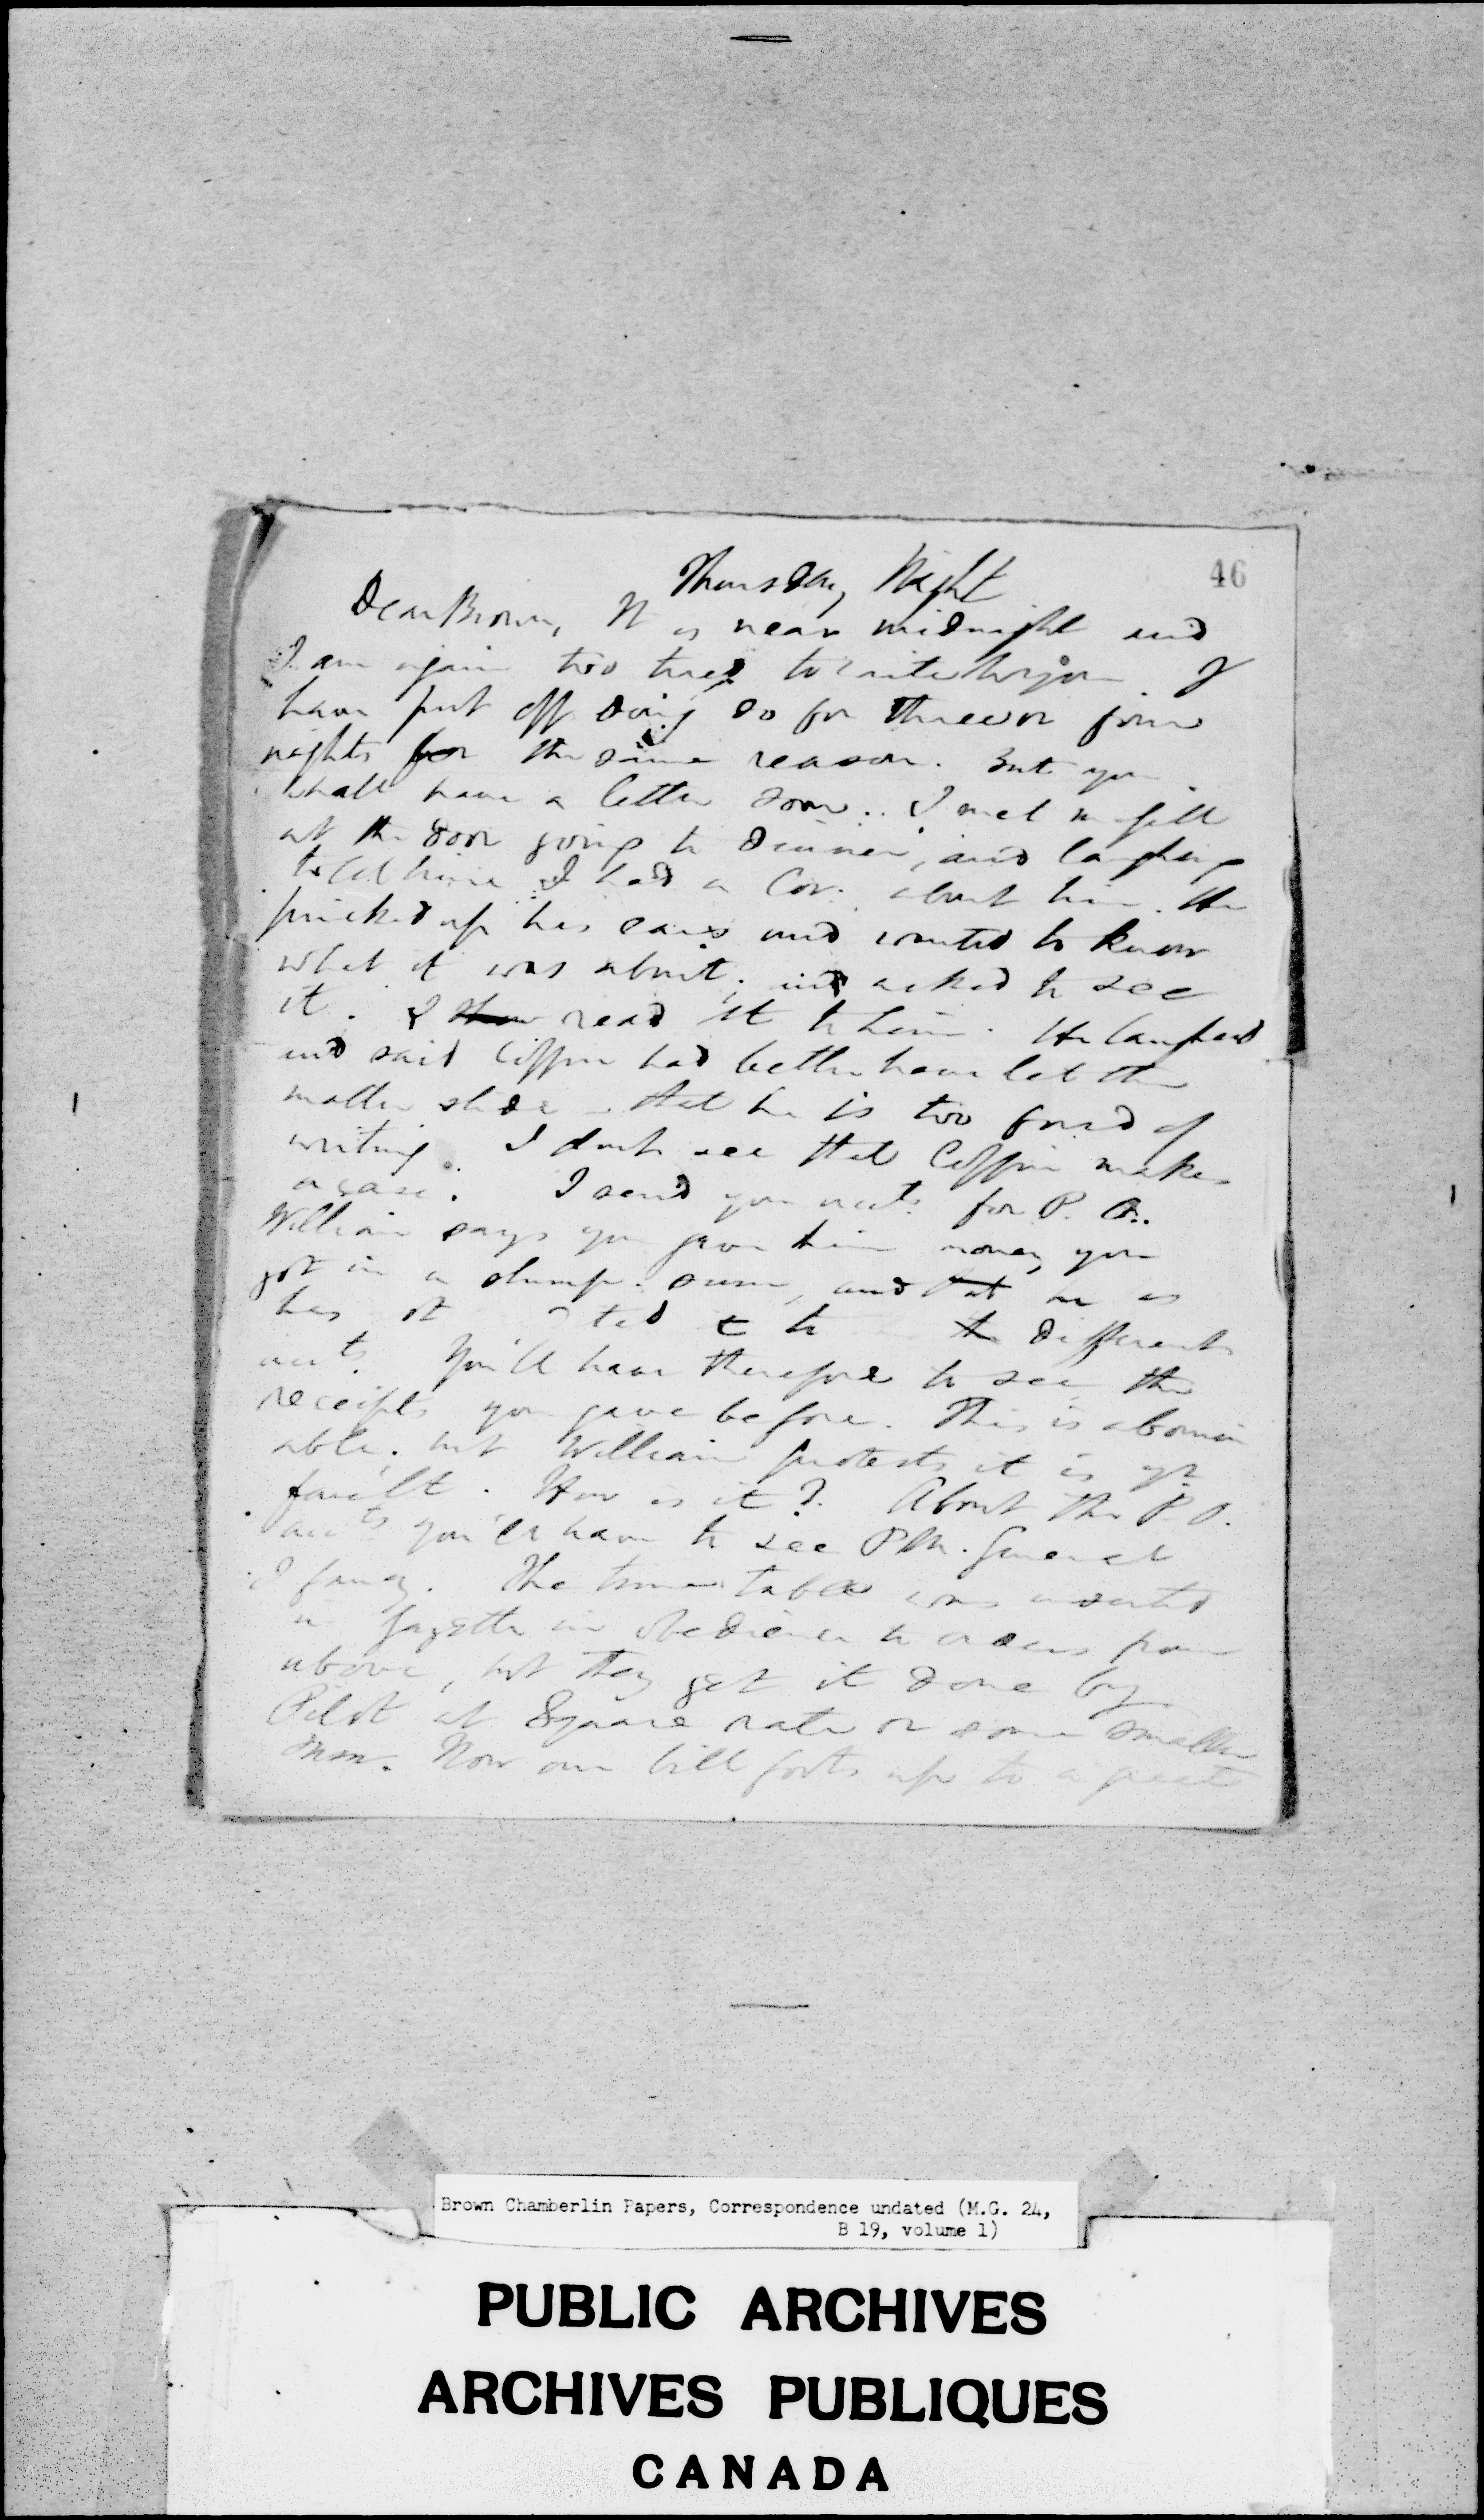 46
Thursday Night
Dear Brown, It is near midnight and
I am again too tired to write to you. I
have put off doing so for three or four
nights for the same reason. But you
shall have a letter soon. I met
at the door going to dinner, and laughing
told him I had a Cor: about him. He
pricked up his ears and wanted to know
what it was about; and asked to see
it. I read it to him. He laughed
and said Coffin had better have let the
matter slide - that he is too fond of
writing. I don't see that Coffin makes
a case. I send you accts. for P. O.
William says you gave him money you
got in a slump sum, and that he
has to different
accts. You'll have therefore to see the
receipts you gave before. This is abomin
able; but William protests it is yr
fault. How is it? About the P.O.
accts you'll have to see P.M. General
I fancy. The time table was inserted
in Gazette in obedience to orders from
above, but they get it done by
Pilot at Square rate or some smaller
sum. Now our bill foots up to a great
Brown Chamberlin Papers, Correspondence undated (M.G. 24,
B 19, volume 1)
PUBLIC ARCHIVES
ARCHIVES PUBLIQUES
CANADA